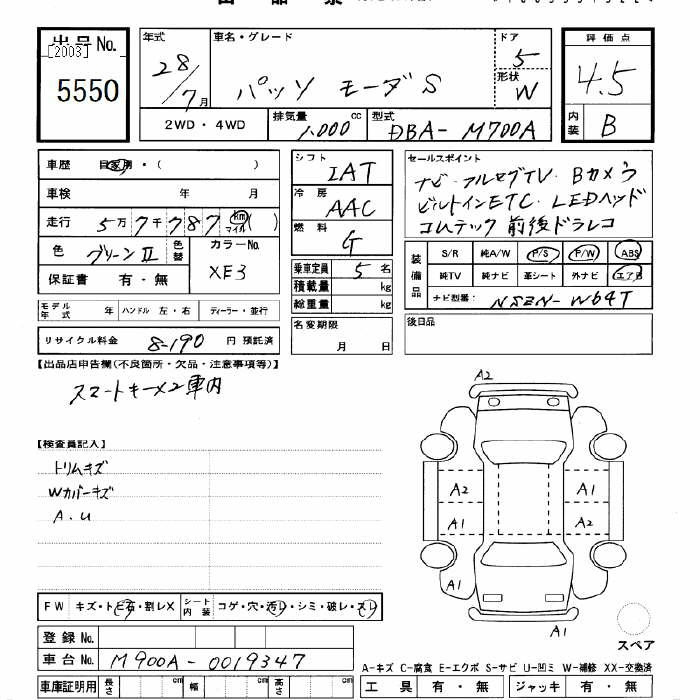 出品No.
[2003]
5550
年式 28/7月
車名・グレード パッソ モーダS
ドア 5
形状 W
評価点 4.5
内装 B
2WD・4WD
排気量 1.000 cc
型式 DBA-M700A
車歴 自家用・( )
車検 年 月
走行 5万7千787 km マイル ( )
色 グリーンⅡ 色替
カラーNo. XE3
保証書 有・無
モデル年式 年 ハンドル 左・右 ディーラー・並行
リサイクル料金 8-190 円 預託済
シフト IAT
冷房 AAC
燃料 G
乗車定員 5 名
積載量 kg
総重量 kg
名変期限 月 日
セールスポイント
ナビ・フルセグTV Bカメラ
ビルトインETC・LEDヘッド
コムテック 前後ドラレコ
装備品
S/R 純A/W P/S P/W ABS
純TV 純ナビ 革シート 外ナビ エアB
ナビ型番: NSZN-W64T
後日品
【出品店申告欄(不良箇所・欠品・注意事項等)】
スマートキー×2車内
【検査員記入】
トリムキズ
Wカバーキズ
A.U
A2
A2 A1
A1 A2
A1
A1
FW キズ・トビ石・割レX シート内装 コゲ・穴・汚レ・シミ・破レ・スレ
登録No.
車台No. M900A-0019347
スペア
A-キズ C-腐食 E-エクボ S-サビ U-凹ミ W-補修 XX-交換済
車庫証明用 長さ cm 幅 cm 高さ cm
工具 有・無 ジャッキ 有・無